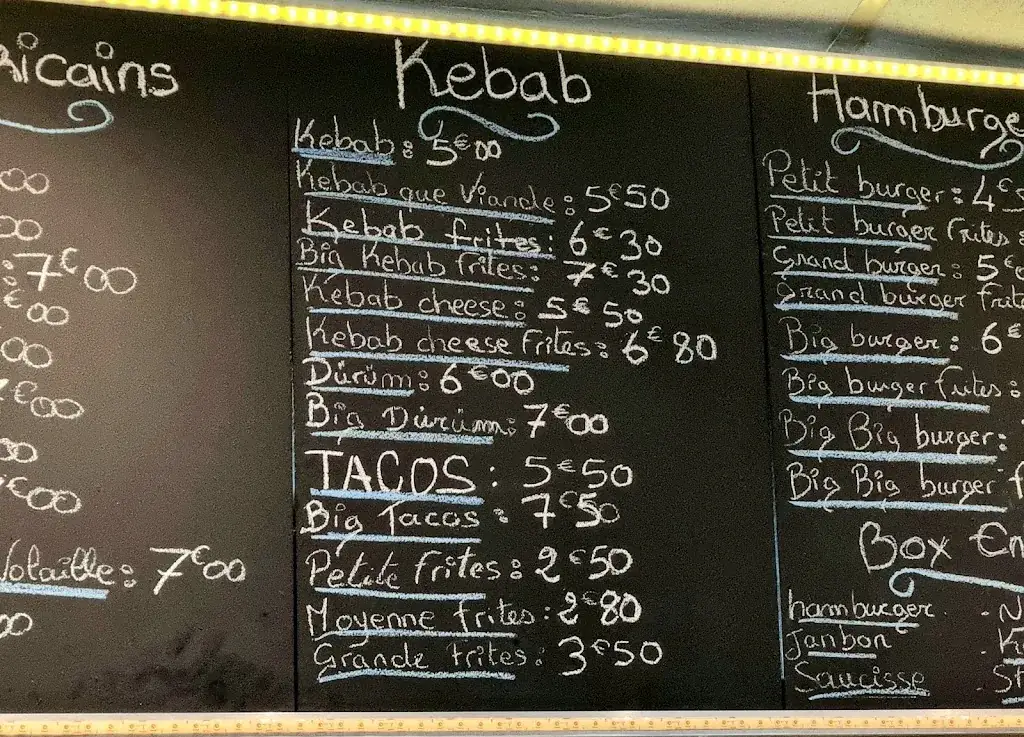 icains
00
00
: 7€00
€00
00
€00
00
€00
Volaille: 7€00
00
Kebab
Kebab: 5€00
Kebab que Viande: 5€50
Kebab frites: 6€30
Big Kebab frites: 7€30
Kebab cheese: 5€50
Kebab cheese frites: 6€80
Dürüm: 6€00
Big Dürüm: 7€00
TACOS: 5€50
Big Tacos: 7€50
Petite frites: 2€50
Moyenne frites: 2€80
Grande frites: 3€50
Hamburge
Petit burger: 4€5
Petit burger frites:
Grand burger: 5€
Grand burger frit
Big burger: 6€
Big burger frites:
Big Big burger:
Big Big burger f
Box En
hamburger - N
Janbon - K
Saucisse - St